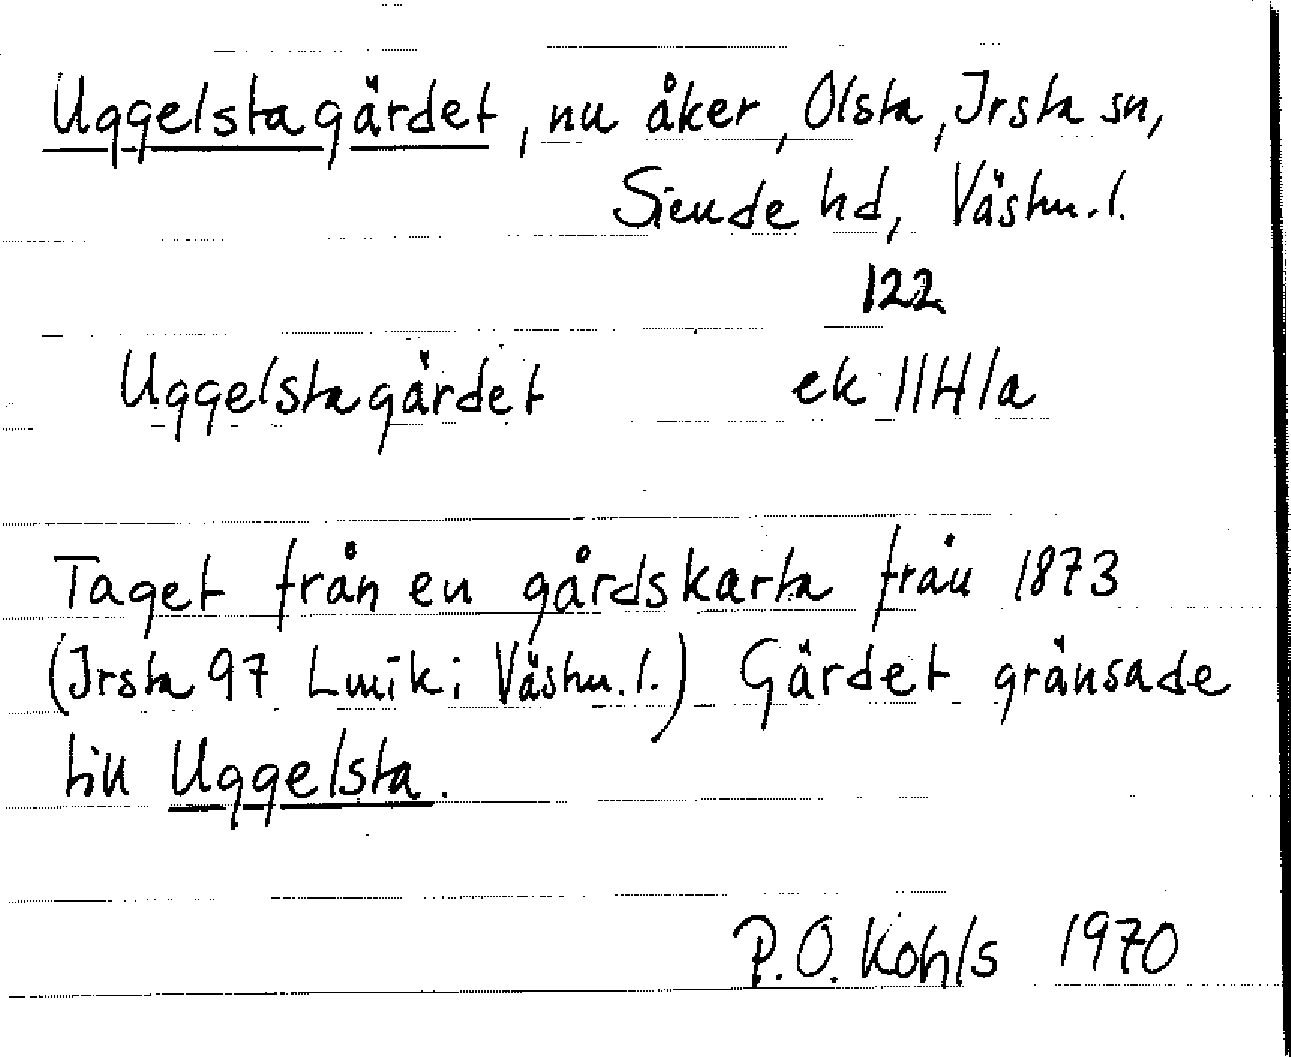 Uggelstagärdet, nu åker, Olsta, Irsta sn,
Siende hd, Västm. l.
122
Uggelstagärdet ek 11H1a
Taget från en gårdskarta från 1873
(Irsta 97 Lmik i Västm. l.) Gärdet gränsade
till Uggelsta.
P.O. Kohls 1970